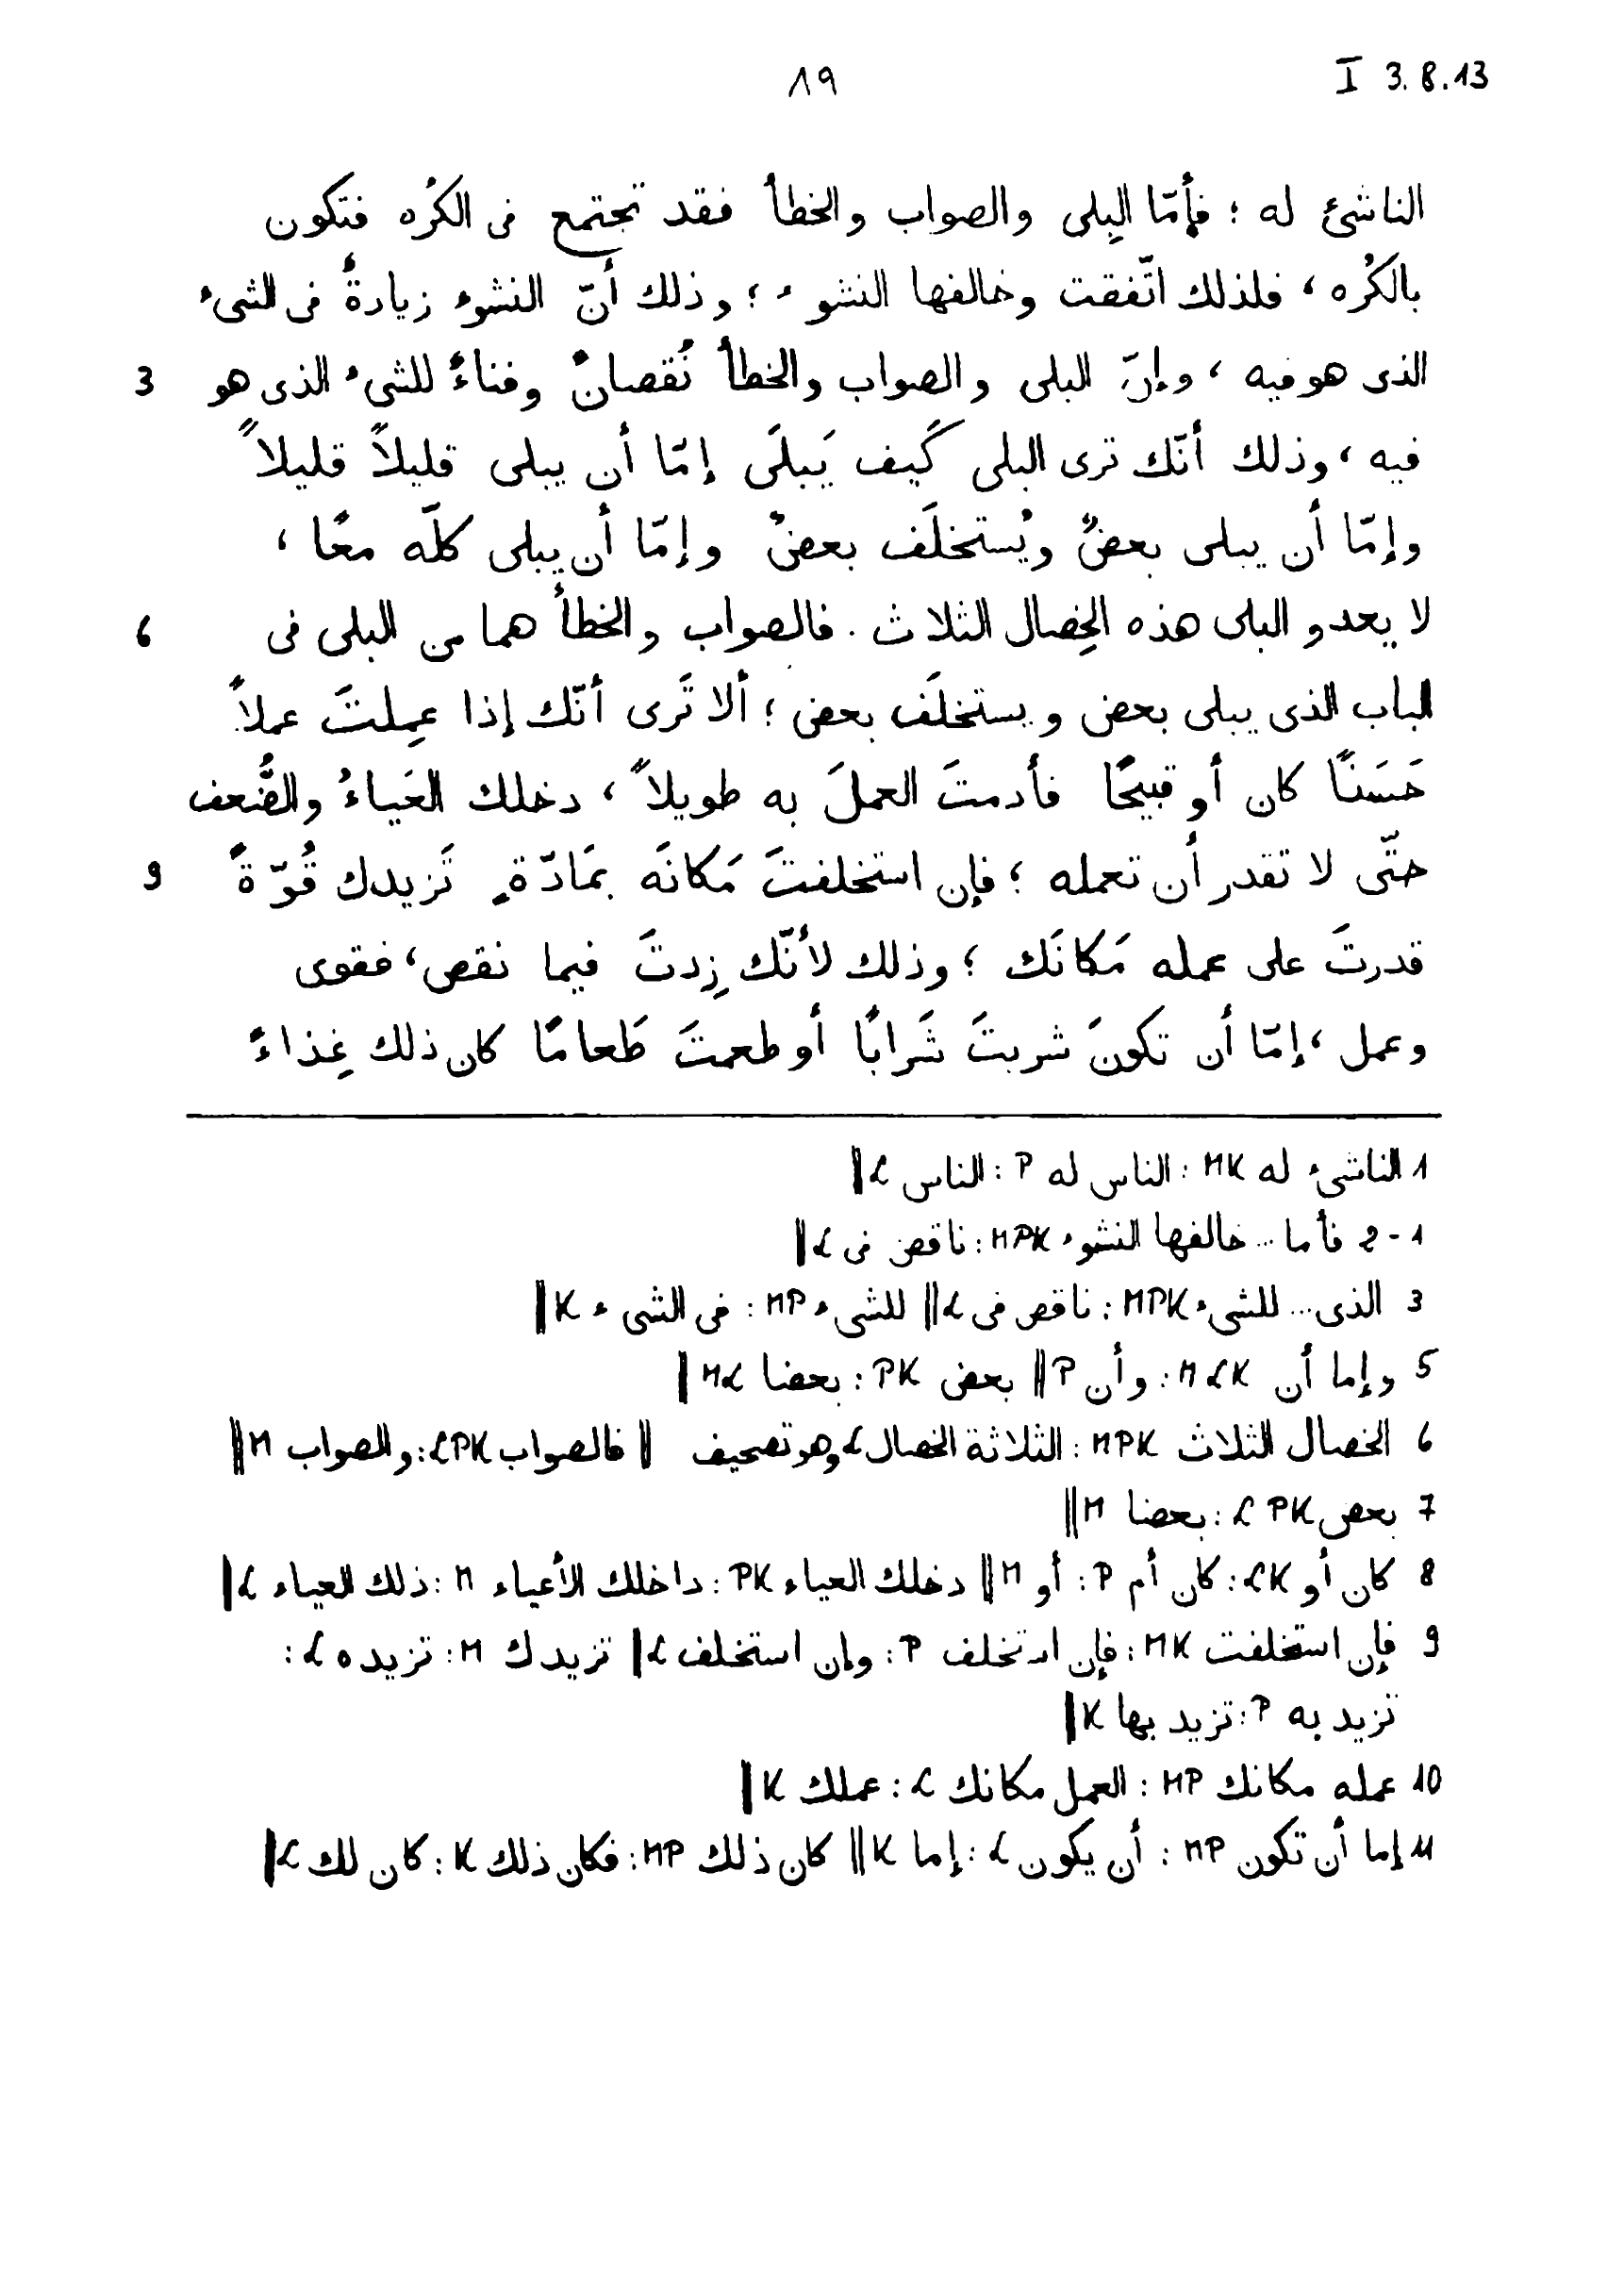 ١٩ I 3.8.13
الناشئ له ؛ فأمّا البِلى والصواب والخطأ فقد تجتمع فى الكُره فتكون
بالكُره ، فلذلك اتّفقت وخالفها النشوء ؛ وذلك أنّ النشوء زيادةٌ فى الشىء
الذى هو فيه ، وإنّ البلى والصواب والخطأ نُقصانٌ وفناءٌ للشىء الذى هو 3
فيه ، وذلك أنّك ترى البلى كَيف يَبلَى إمّا أن يبلى قليلاً قليلاً
وإمّا أن يبلى بعضٌ ويُستخلَف بعضٌ وإمّا أن يبلى كلّه معًا ،
لا يعدو البلى هذه الخِصال الثلاث . فالصواب والخطأ هما من البلى فى 6
الباب الذى يبلى بعض ويستخلَف بعض ؛ ألا تَرى أنّك إذا عمِلتَ عملاً
حَسَنًا كان أو قبيحًا فأدمتَ العملَ به طويلاً ، دخلك العَياءُ والضُّعف
حتّى لا تقدر أن تعمله ؛ فإن استخلفتَ مَكانَه بمَادّةٍ تَزيدك قُوّةً 9
قدرتَ على عمله مَكانَك ؛ وذلك لأنّك زِدتَ فيما نقص ، فقوى
وعمل ، إمّا أن تكونَ شربتَ شَرابًا أو طعمتَ طَعامًا كان ذلك غِذاءً
1 الناشىء له MK : الناس له P : الناس L ||
1 - 2 فأما ... خالفها النشوء MPK : ناقص فى L ||
3 الذى ... للشىء MPK : ناقص فى L || للشىء MP : فى الشىء K ||
5 وإما أن MLK : وأن P || بعض PK : بعضا ML ||
6 الخصال الثلاث MPK : الثلاثة الخصال L وهو تصحيف || فالصواب LPK : والصواب M ||
7 بعض LPK : بعضا M ||
8 كان أو LK : كان أم P : أو M || دخلك العياء PK : داخلك الأعياء M : ذلك العياء L ||
9 فإن استخلفت MK : فإن استخلف P : وإن استخلف L || تزيدك M : تزيده L :
تزيد به P : تزيد بها K ||
10 عمله مكانك MP : العمل مكانك L : عملك K ||
11 إما أن تكون MP : أن يكون L : إما K || كان ذلك MP : فكان ذلك K : كان لك L ||